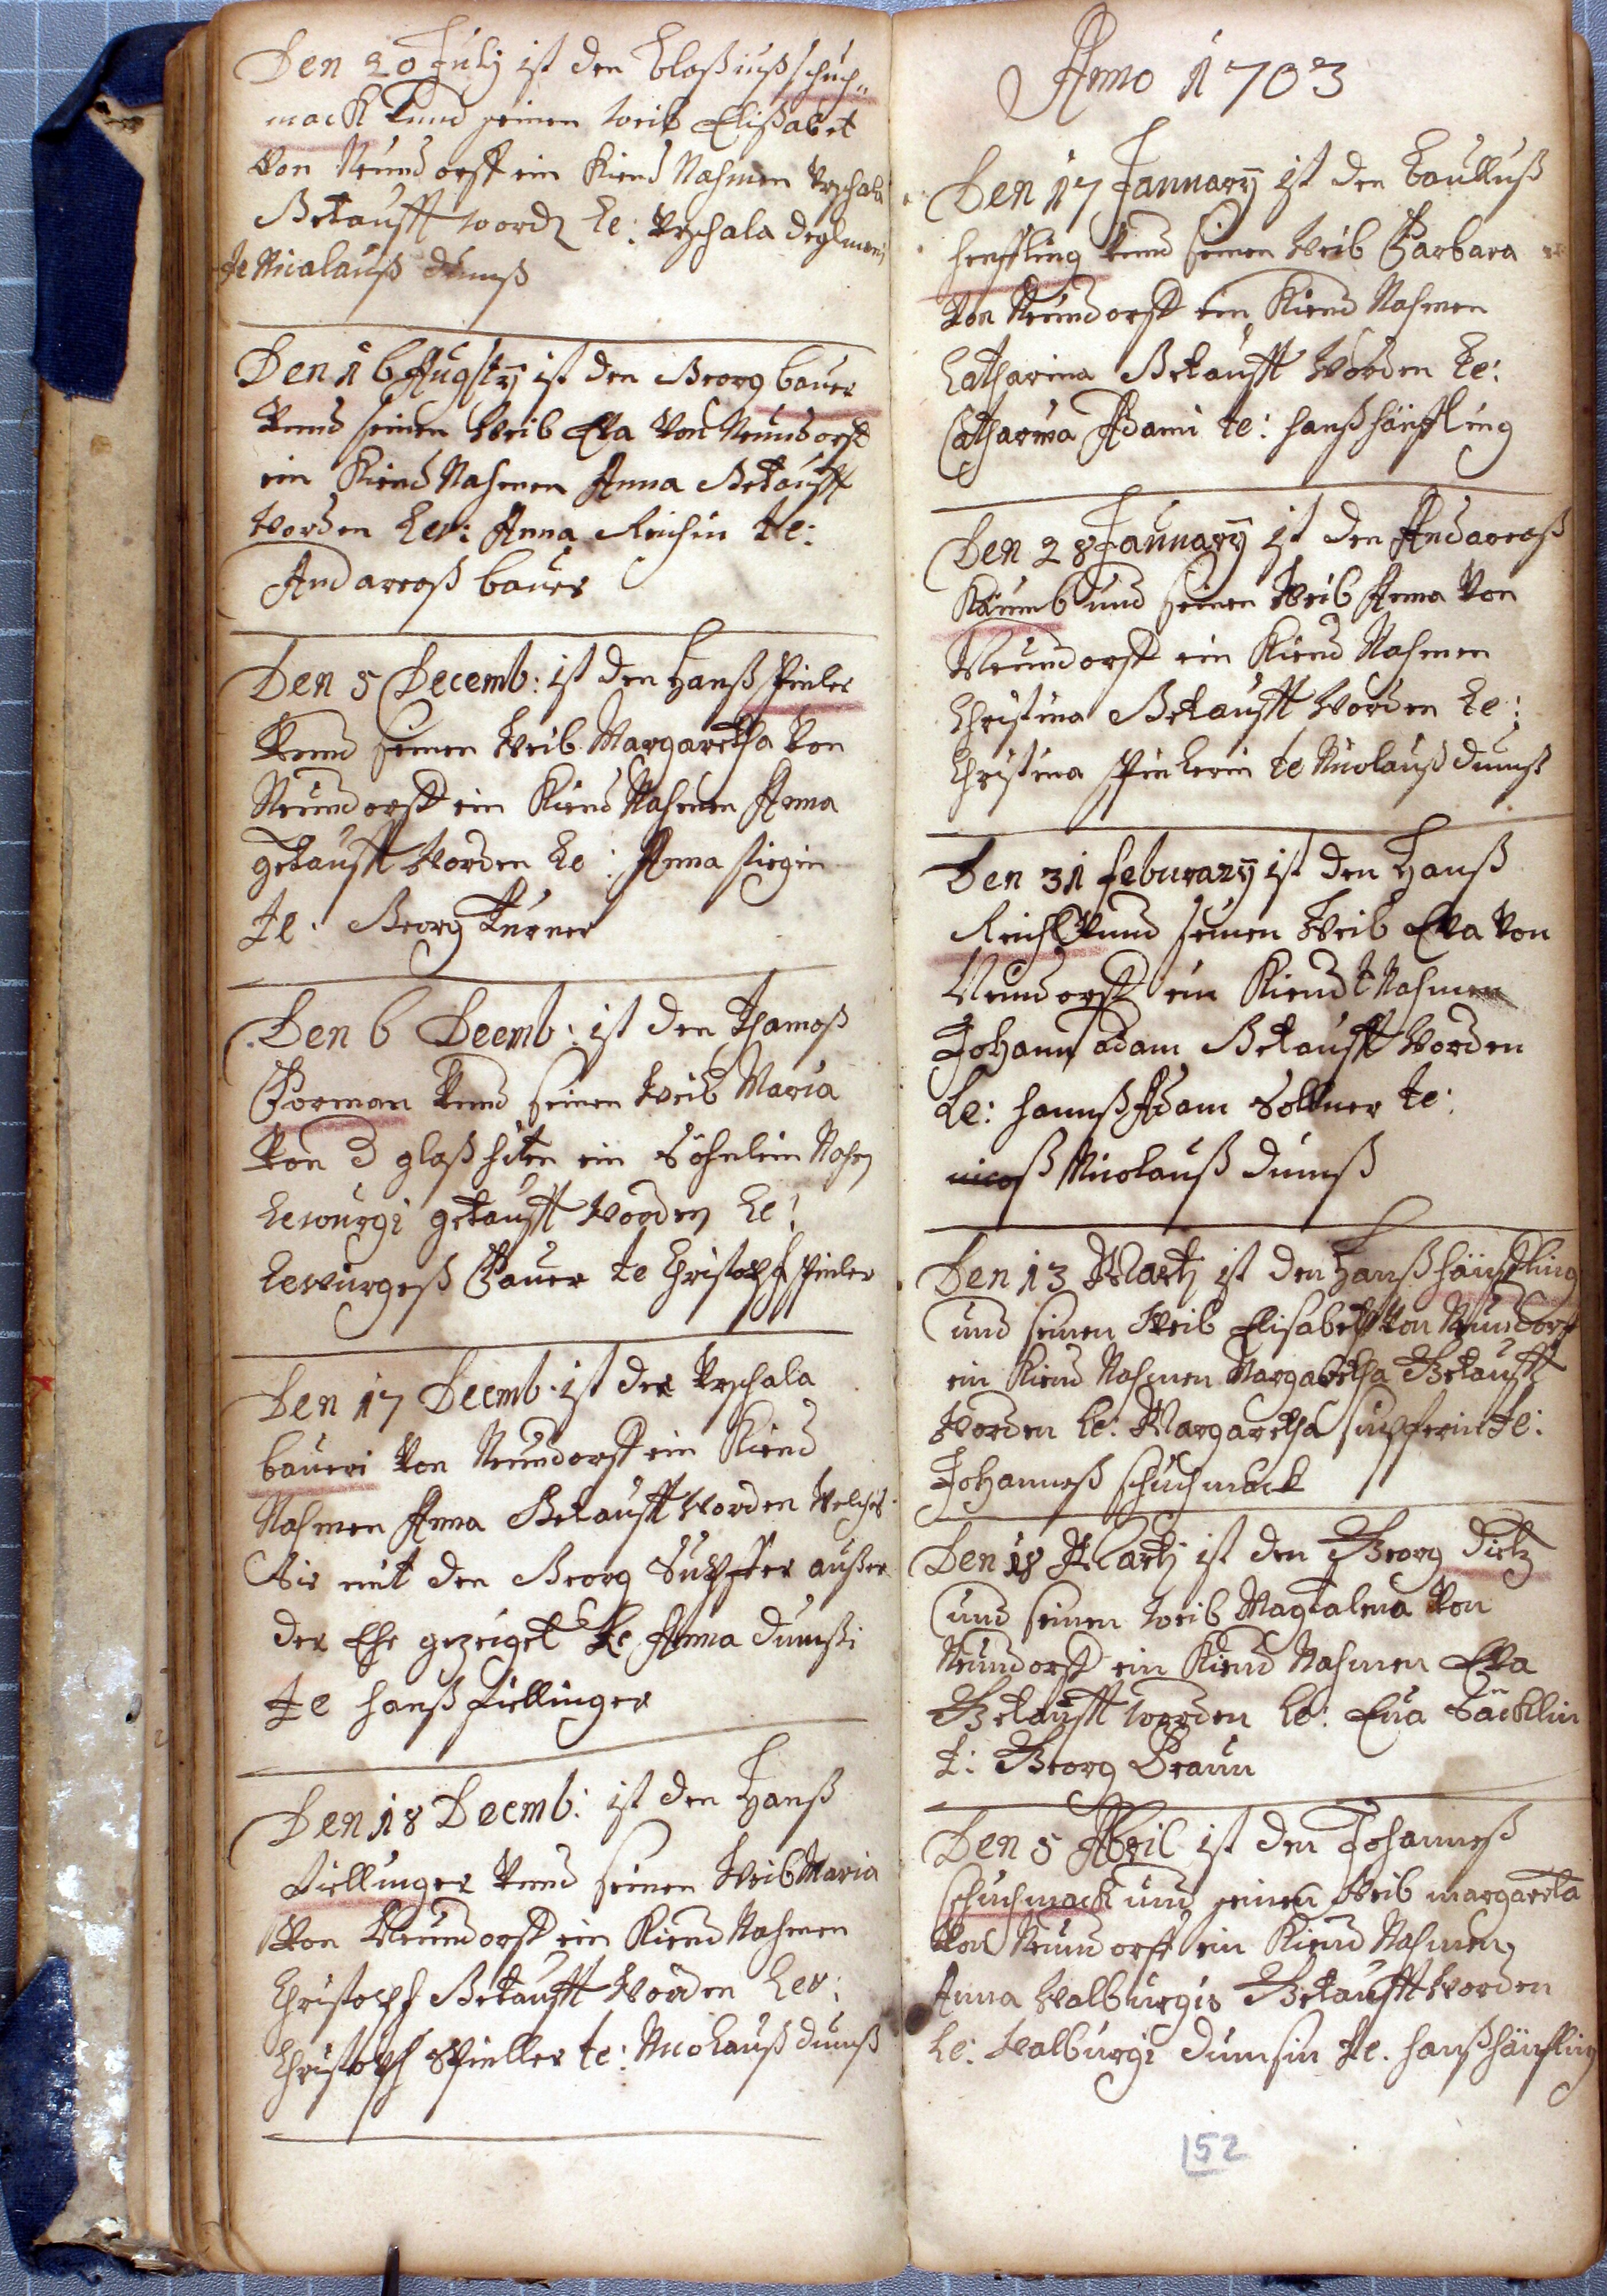 Den 20 July ist den Blaßiuß schuch„
mach Vnnd seinen weib Elisabet
Von Neundorff ein Kiend Nahmen Vrschala
Getaufft word Le: Vrschala
te Nicalauß Dumß
Den 16 Augsty ist den Georg bauer
Vnnd seinen Weib Eva Von Neundorff
ein Kiend Nahmen Anna Getaufft
Worden Lev: Anna Reichin te:
Andareaß bauer
Den 5 Decemb: ist den Hanß spieler
Vnnd seinen Weib Margaretha Von
Neundorff ein Kiend Nahmen Anna
getaufft Worden Le: Anna
te: Georg Turner
Den 6 Deemb: ist den Thamaß
Forman Vnnd seinen Weib Maria
Von d glaßhiten ein Söhnlein Nahm
Lewurgi getaufft Worden Le:
Lewurgeß Bauer te Christoph spieler
Den 17 Deemb: ist der Vrschala
baueri Von Neundorff ein Kiend
Nahmen Anna Getaufft Worden Welches
Sie mit den Georg Supffer außer
der Ehe gezeiget Le Anna dumßi
te hanß Fiellinger
Den 18 Deemb: ist den Hanß
Fiellinger Vnnd seinen Weib Maria
Von Neundorff ein Kiend Nahmen
Christoph Getaufft Worden Lev:
Christoph Spieller te: Nicolauß dumß
Anno 1703
Den 17 Jannary ist den Paulluß
henffling Vnnd seinen Weib Barbara
Von Neundorff ein Kiend Nahmen
Catharina Getaufft Worden Le:
Catharina Adami te: hanß hänffling
Den 28 Jannary ist den Andareaß
Kaumb und seinen Weib Anna Von
Neundorff ein Kiend Nahmen
Christina Getaufft Worden Le:
Christina spielerin te Nicolauß dumß
Den 31 feburary ist den Hanß
Reichl Vnnd seinen Weib Eva Von
Neundorff ein Kiendt Nahmen
Johann adam Getaufft Worden
Le: hannß Adam Söllner te:
Nicolauß dumß
Den 13 Marty ist den Hanß hänffling
und seinen Weib Elisabeth Von Neundorf
ein Kiend Nahmen Margaretha Getaufft
Worden Le: Margaretha supfferin te:
Johanneß schuchmack
Den 18 Marty ist den Georg dietz
und seinen weib Magdalena Von
Neundorff ein Kiend Nahmen Eva
Getaufft worden Le: Eua Säcklin
t: Georg Braun
Den 5 Abril ist den Johanneß
schuchmack und seinen Weib margareta
Von Neundorff ein Kiend Nahmen
Anna Walburgis Getaufft Worden
Le: Walburgi dumsin te: hanß hänffling
152